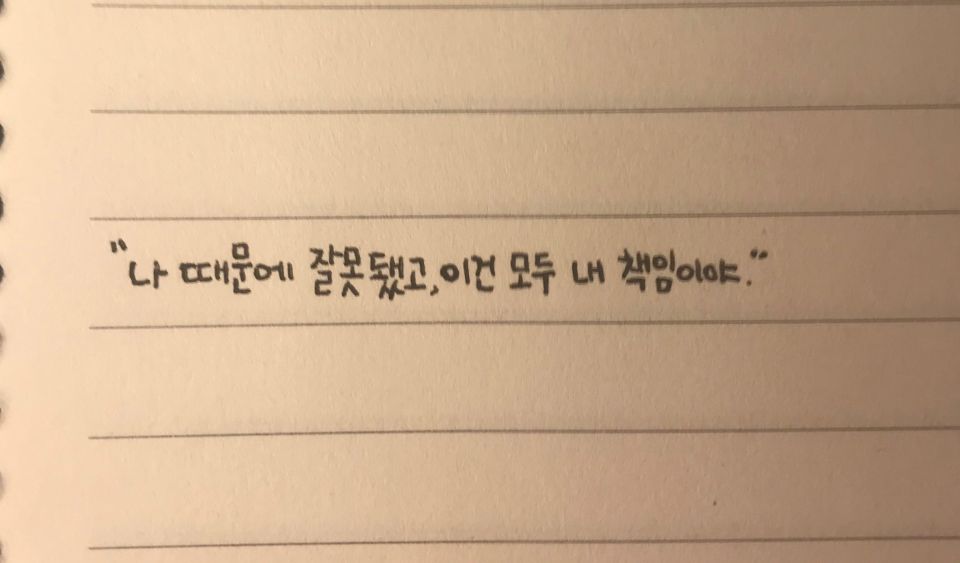 "나 때문에 잘못됐고, 이건 모두 내 책임이야."